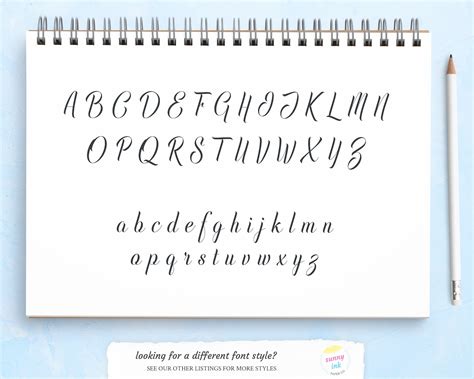 A B C D E F G H I J K L M N
O P Q R S T U V W X Y Z
a b c d e f g h i j k l m n
o p q r s t u v w x y z
looking for a different font style?
SEE OUR OTHER LISTINGS FOR MORE STYLES.
sunny
ink